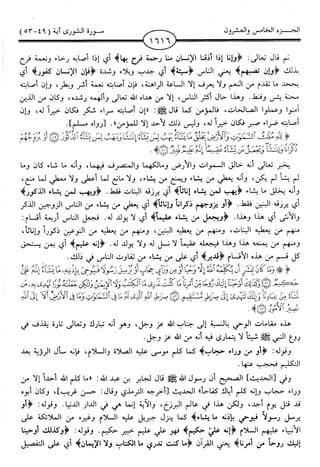 الجـزء الخامس والعشرون
١٦١٦
سورة الشورى آية (٤٩-٥٣)
ثم قال تعالى: ﴿وإنا إذا أذقنا الإنسان منا رحمة فرح بها﴾ أي إذا أصابه رخاء ونعمة فرح
بذلك ﴿وإن تصبهم﴾ يعني الناس ﴿سيئة﴾ أي جدب وبلاء وشدة ﴿فإن الإنسان كفور﴾ أي
يجحد ما تقدم من النعم ولا يعرف إلا الساعة الراهنة، فإن أصابته نعمة أشر وبطر، وإن أصابته
محنة يئس وقنط. وهذا حال أكثر الناس، إلا من هداه الله تعالى وألهمه رشده، وكان من الذين
آمنوا وعملوا الصالحات، فالمؤمن كما قال ﷺ: «إن أصابته سراء شكر فكان خيراً له، وإن
أصابته ضراء صبر فكان خيراً له، وليس ذلك لأحد إلا للمؤمن». [رواه مسلم].
﴿لِلَّهِ مُلْكُ السَّمَوَاتِ وَالْأَرْضِ يَخْلُقُ مَا يَشَاءُ يَهَبُ لِمَن يَشَاءُ إِنَاثًا وَيَهَبُ لِمَن يَشَاءُ الذُّكُورَ ۝ أَوْ يُزَوِّجُهُمْ ذُكْرَانًا
وَإِنَاثًا وَيَجْعَلُ مَن يَشَاءُ عَقِيمًا إِنَّهُ عَلِيمٌ قَدِيرٌ ۝﴾
يخبر تعالى أنه خالق السموات والأرض ومالكهما والمتصرف فيهما، وأنه ما شاء كان وما
لم يشأ لم يكن، وأنه يعطي من يشاء ويمنع من يشاء، ولا مانع لما أعطى ولا معطي لما منع،
وأنه يخلق ما يشاء ﴿يهب لمن يشاء إناثاً﴾ أي يرزقه البنات فقط. ﴿ويهب لمن يشاء الذكور﴾
أي يرزقه البنين فقط. ﴿أو يزوجهم ذكراناً وإناثاً﴾ أي يعطي لمن يشاء من الناس الزوجين الذكر
والأنثى أي هذا وهذا. ﴿ويجعل من يشاء عقيماً﴾ أي لا يولد له. فجعل الناس أربعة أقسام:
منهم من يعطيه البنات، ومنهم من يعطيه البنين، ومنهم من يعطيه من النوعين ذكوراً وإناثاً،
ومنهم من يمنعه هذا وهذا فيجعله عقيماً لا نسل له ولا يولد له. ﴿إنه عليم﴾ أي بمن يستحق
كل قسم من هذه الأقسام ﴿قدير﴾ أي على من يشاء من تفاوت الناس في ذلك.
﴿۞ وَمَا كَانَ لِبَشَرٍ أَن يُكَلِّمَهُ اللَّهُ إِلَّا وَحْيًا أَوْ مِن وَرَاءِ حِجَابٍ أَوْ يُرْسِلَ رَسُولًا فَيُوحِيَ بِإِذْنِهِ مَا يَشَاءُ إِنَّهُ عَلِيٌّ
هذه مقامات الوحي بالنسبة إلى جناب الله عز وجل، وهو أنه تبارك وتعالى تارة يقذف في
روع النبي ﷺ شيئاً لا يتمارى فيه أنه من الله عز وجل.
وقوله: ﴿أو من وراء حجاب﴾ كما كلم موسى عليه الصلاة والسلام، فإنه سأل الرؤية بعد
التكليم فحجب عنها.
وفي [الحديث] الصحيح أن رسول الله ﷺ قال لجابر بن عبد الله: «ما كلم الله أحداً إلا من
وراء حجاب وإنه كلم أباك كفاحاً» الحديث [أخرجه الترمذي وقال: حسن غريب]، وكان أبوه
قد قتل يوم أحد، ولكن هذا في عالم البرزخ، والآية إنما هي في الدار الدنيا. وقوله: ﴿أو
يرسل رسولاً فيوحي بإذنه ما يشاء﴾ كما ينزل جبريل عليه السلام وغيره من الملائكة على
الأنبياء عليهم السلام ﴿إنه عليّ حكيم﴾ فهو علي عليم خبير حكيم. وقوله: ﴿وكذلك أوحينا
إليك روحاً من أمرنا﴾ يعني القرآن ﴿ما كنت تدري ما الكتاب ولا الإيمان﴾ أي على التفصيل